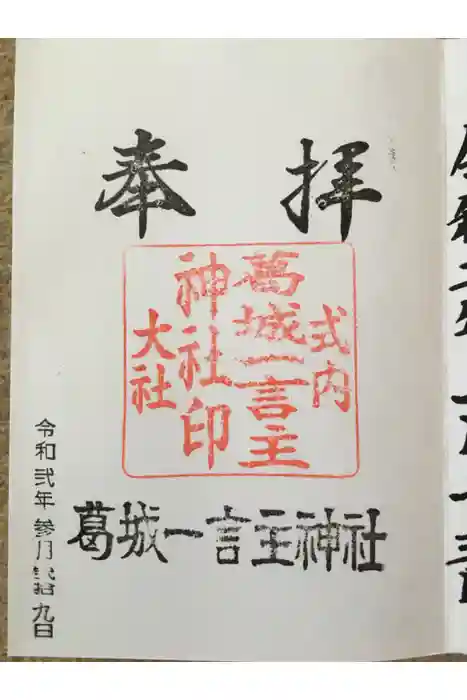 奉拝
式内
葛城一言主
神社印
大社
葛城一言主神社
令和弐年参月弐拾九日